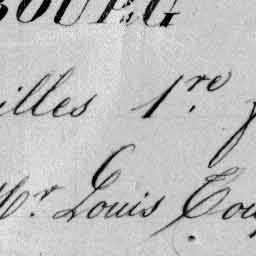 BOURG
illes 1.re
Mr. Louis